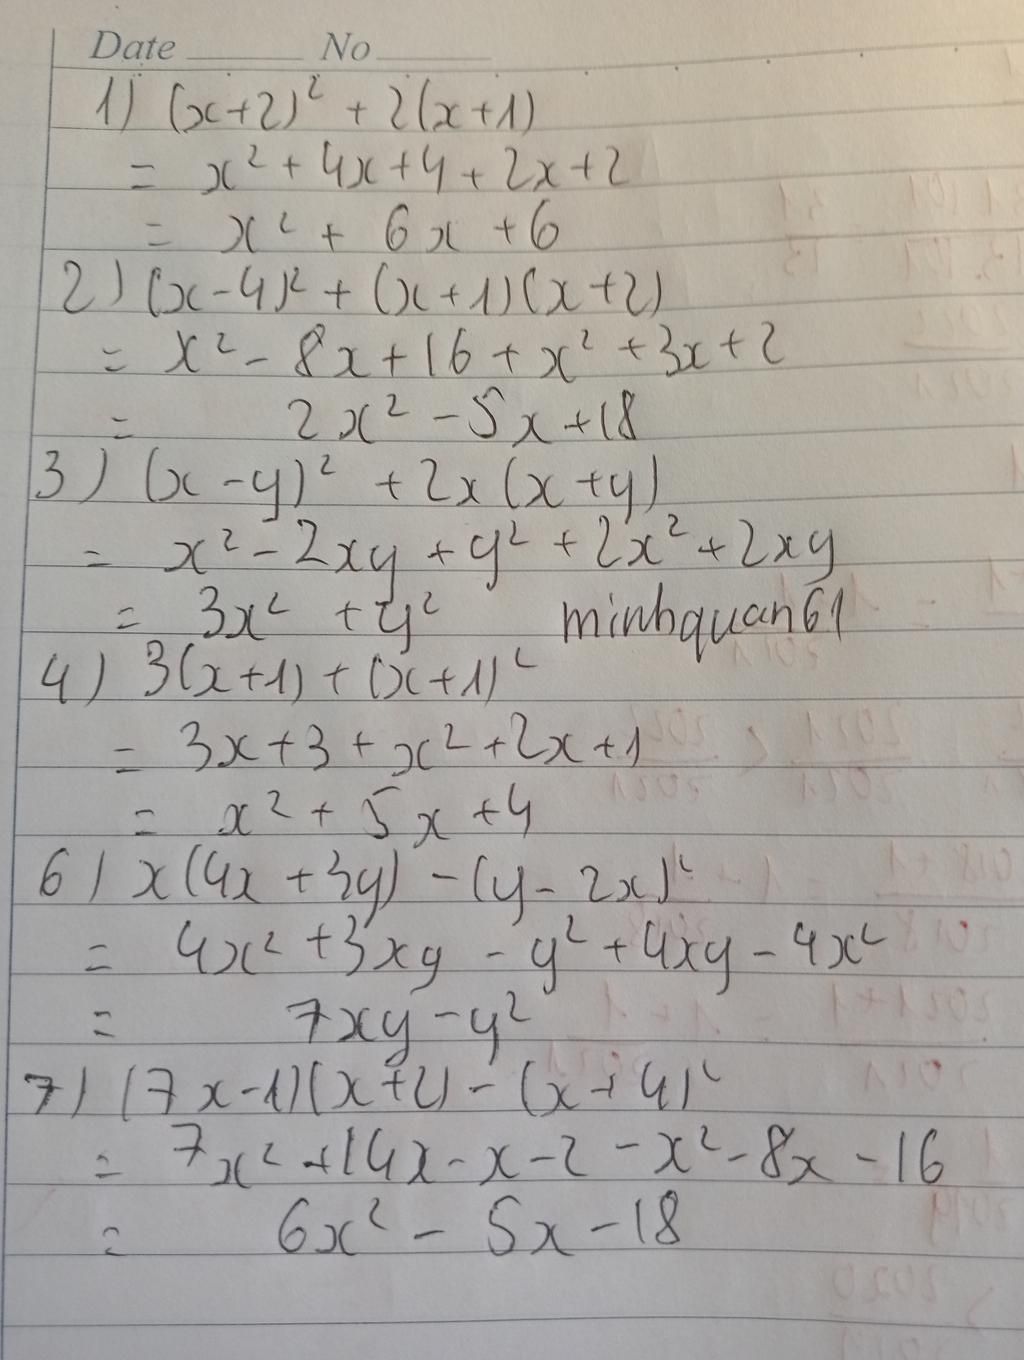 Date No
1) (x+2)² + 2(x+1)
= x² + 4x + 4 + 2x + 2
= x² + 6x + 6
2) (x-4)² + (x+1)(x+2)
= x² - 8x + 16 + x² + 3x + 2
= 2x² - 5x + 18
3) (x-y)² + 2x(x+y)
= x² - 2xy + y² + 2x² + 2xy
= 3x² + y² minhquan61
4) 3(x+1) + (x+1)²
= 3x + 3 + x² + 2x + 1
= x² + 5x + 4
6) x(4x + 3y) - (y - 2x)²
= 4x² + 3xy - y² + 4xy - 4x²
= 7xy - y²
7) (7x-1)(x+2) - (x+4)²
= 7x² + 14x - x - 2 - x² - 8x - 16
= 6x² - 5x - 18